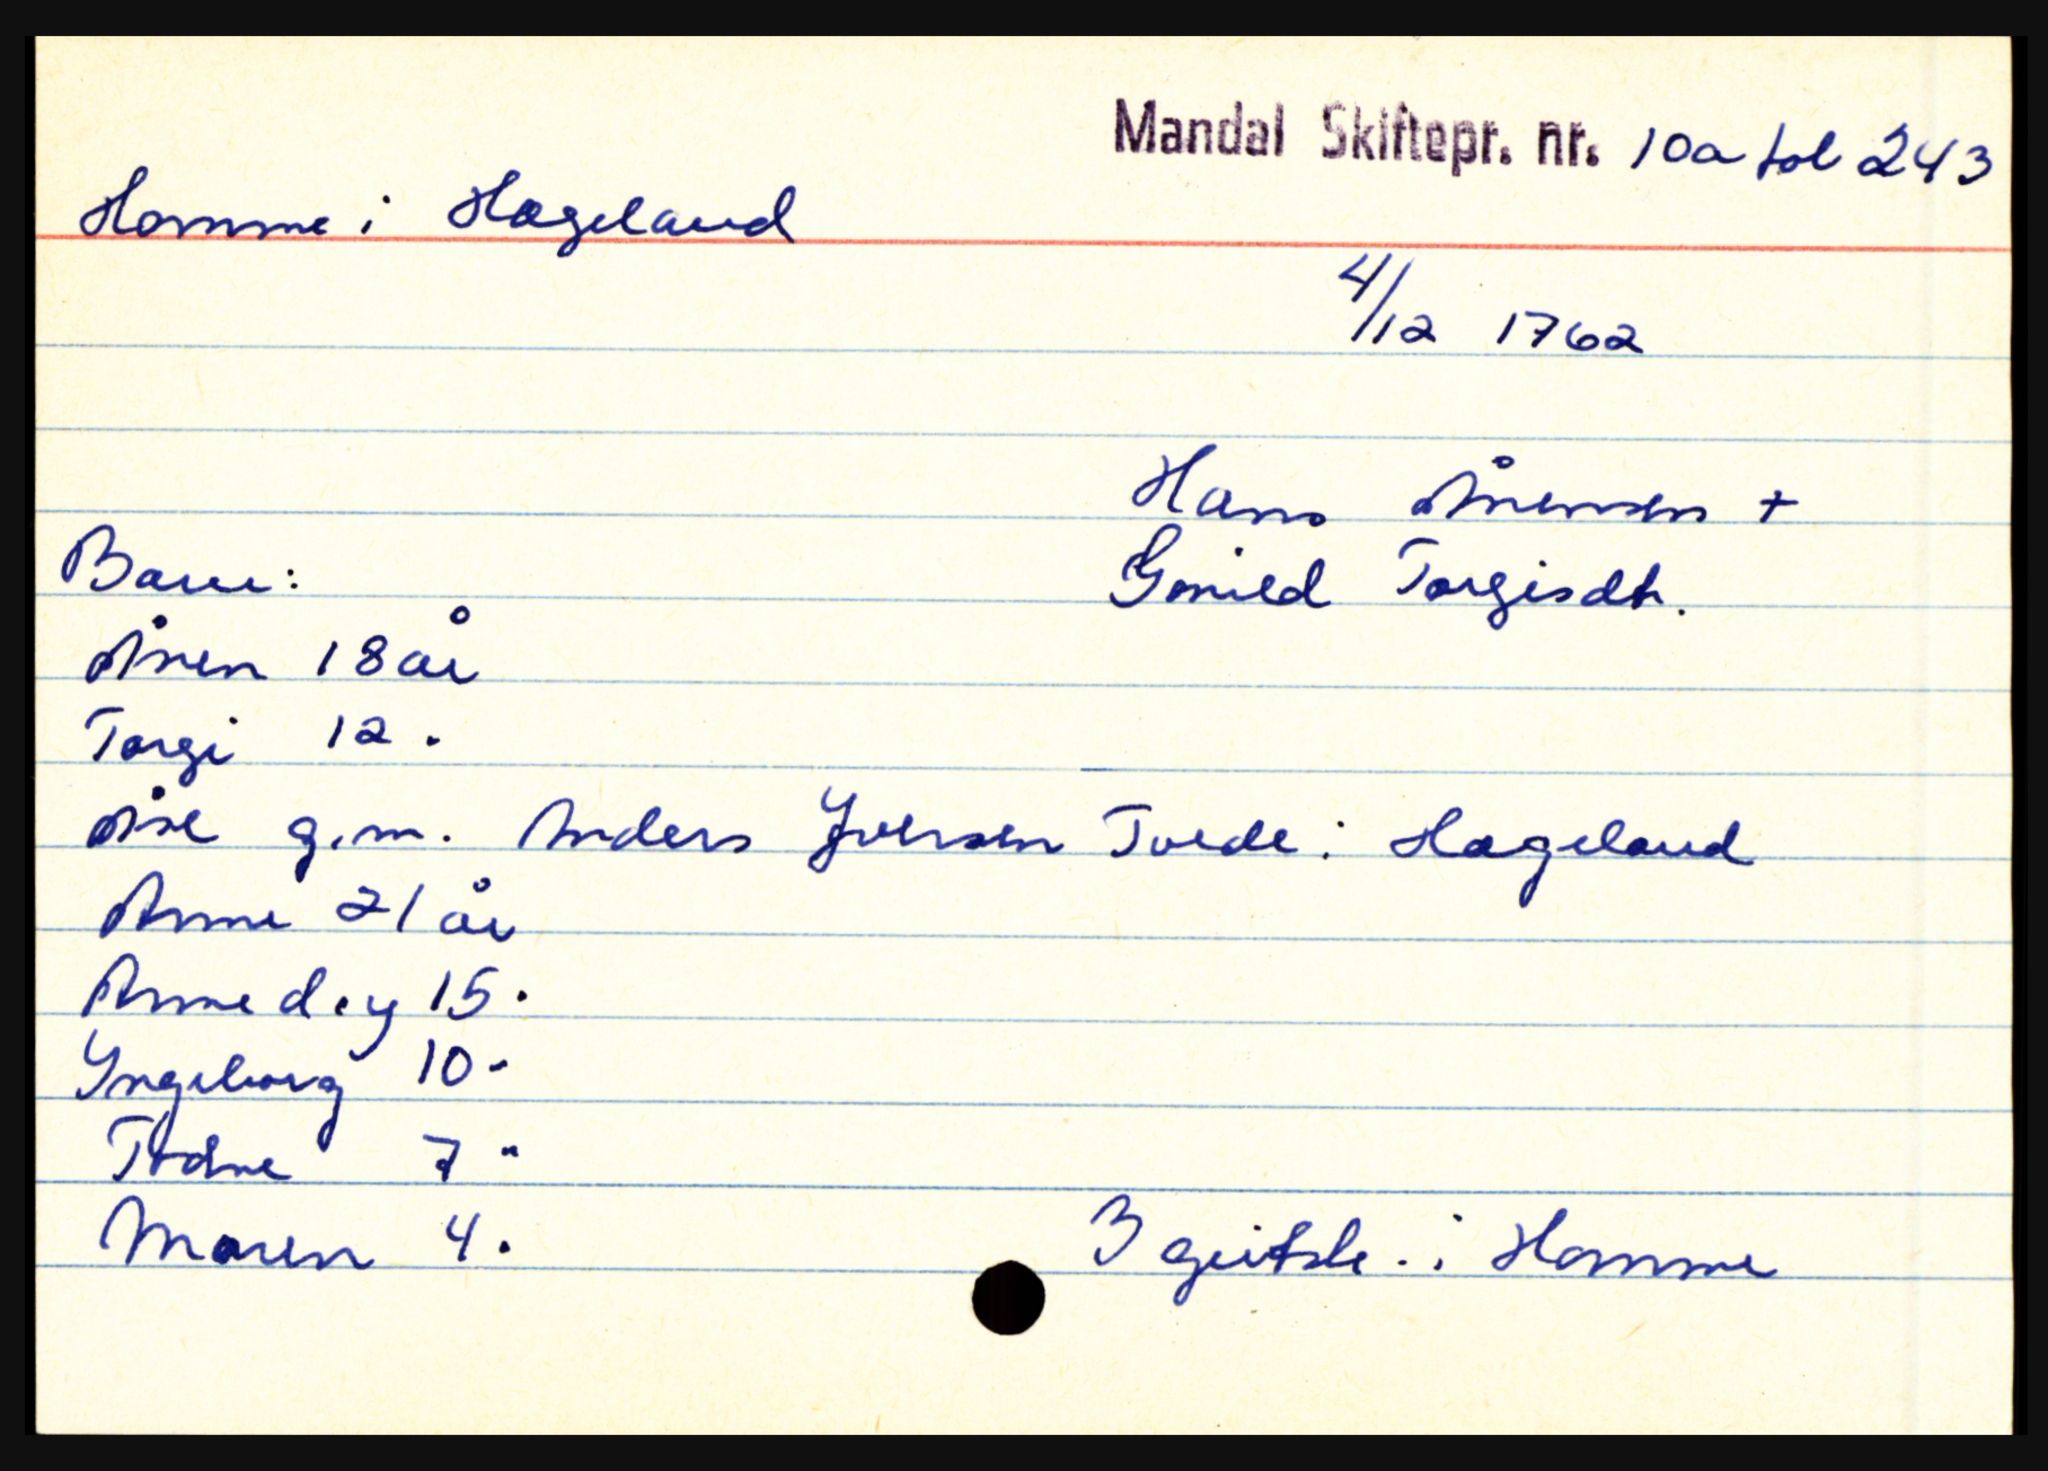 Mandal Skiftepr. nr. 10a fol 243
Homme i Hægeland
4/12 1762
Hans Ånensen +
Gonild Torgisdtr.
Barn:
Ånen 18 år
Torgi 12 "
Åse g.m. Anders Yversen Tvede i Hægeland
Anne 21 år
Anne d.y 15 "
Yngeborg 10 "
Todne 7 "
Maren 4 "
3 geitsk. i Homme